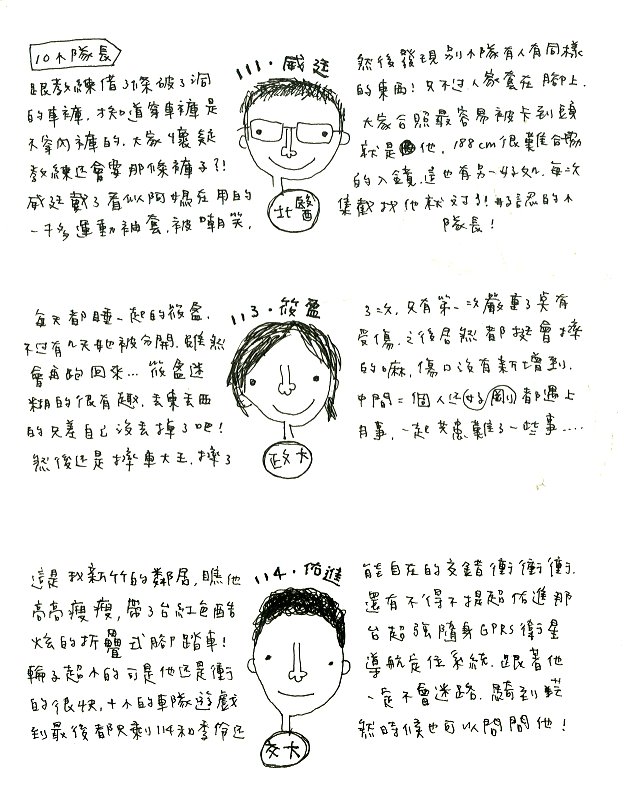 10小隊長
111·威廷
跟教練借了摔破了洞
的車褲，才知道穿車褲是
不穿內褲的。大家懷疑
教練还會要那條褲子?!
威廷戴了看似阿嬤在用的
一千多運動袖套，被嘲笑，
北醫
然後發現別小隊有人有同樣
的東西！只不过人家套在腳上。
大家合照最容易被卡到頭
就是他，188cm很難合照
的入鏡，這也有另一好処，每次
集戲找他就对了！好認的小
隊長！
113·筱盈
每天都睡一起的筱盈，
不过有几天她被分開，雖然
會再跑回來...筱盈迷
糊的很有趣，丟東丟西
的只差自己沒丟掉了吧！
然後还是摔車大王，摔了
政大
3次，只有第一次嚴重了真有
受傷，之後居然都挺會摔
的嘛，傷口沒有新增到。
中間二個人还好剛都遇上
有事，一起共患難了一些事....
114·佑進
這是我新竹的鄰居，瞧他
高高瘦瘦，帶了台紅色酷
炫的折疊式腳踏車！
輪子超小的可是他还是衝
的很快，十小的車隊遊戲
到最後都只剩114和季伶还
交大
能自在的交錯衝衝衝，
還有不得不提起佑進那
台超強隨身GPRS衛星
導航定位系統，跟著他
一定不會迷路，騎到茫
然時候也可以問問他！